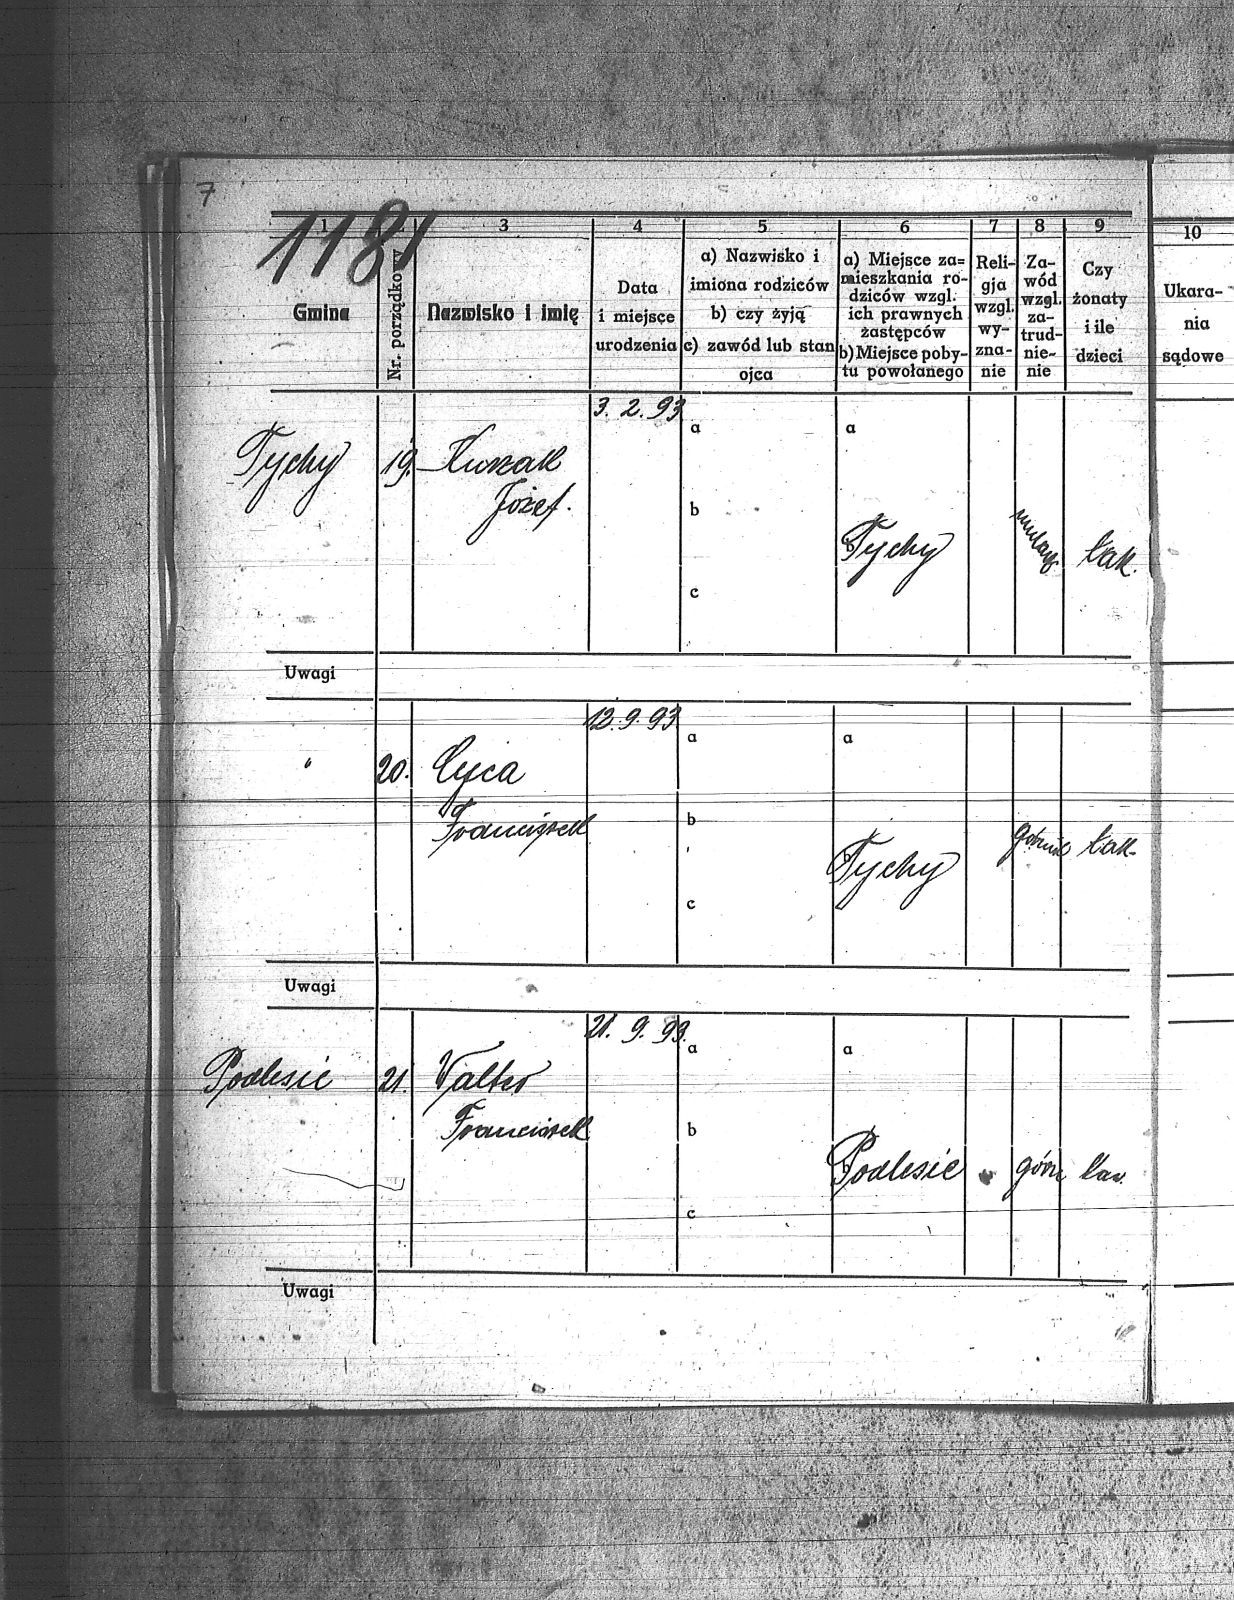 7
1181
1
3
4
5
6
7
8
9
10
Gmina
Nr. porządkowy
Nazwisko i imię
Data
i miejsce
urodzenia
a) Nazwisko i
imiona rodziców
b) czy żyją
c) zawód lub stan
ojca
a) Miejsce za=
mieszkania ro-
dziców wzgl.
ich prawnych
zastępców
b) Miejsce poby-
tu powołanego
Reli-
gja
wzgl.
wy-
zna-
nie
Za-
wód
wzgl.
za-
trud-
nie-
nie
Czy
żonaty
i ile
dzieci
Ukara-
nia
sądowe
3. 2. 93
a
a
Tychy 19.
Józef.
b
b Tychy
tak.
c
Uwagi
12. 9. 93
a
a
" 20. Cyca
Franciszek
b
b Tychy
górnik tak.
c
Uwagi
21. 9. 93.
a
a
Podlesie 21. Walter
Franciszek
b
b Podlesie
górn
c
Uwagi